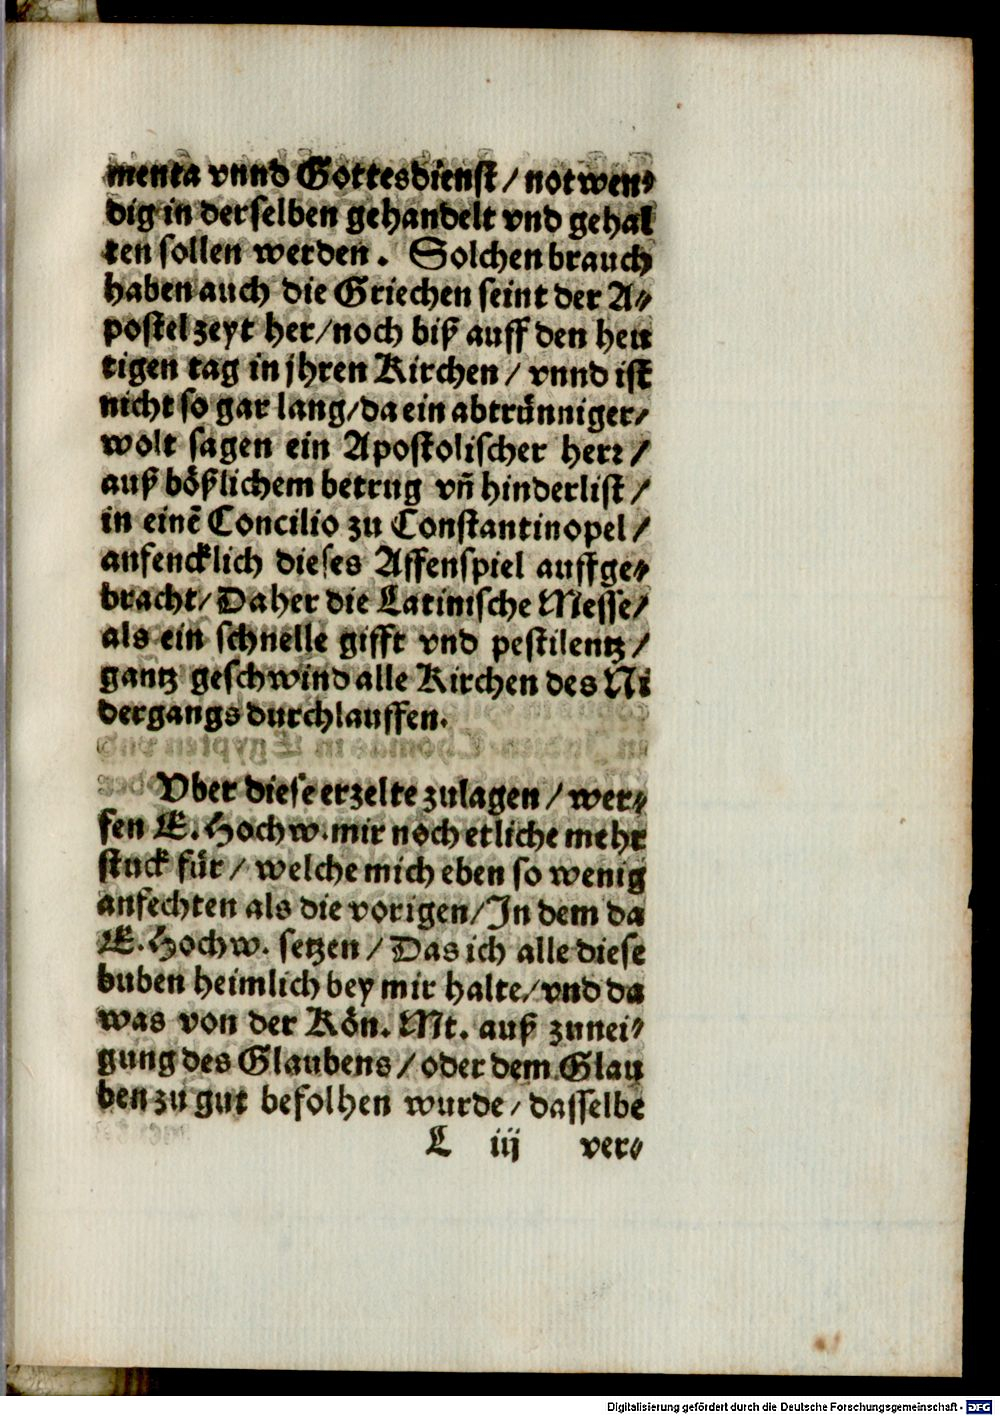 menta vnnd Gottesdienst / notwen⸗
dig in derselben gehandelt vnd gehal
ten sollen werden. Solchen brauch
haben auch die Griechen seint der A⸗
postel zeyt her / noch biß auff den heu
tigen tag in jhren Kirchen / vnnd ist
nicht so gar lang / da ein abtrünniger /
wolt sagen ein Apostolischer herr /
auß bößlichem betrug vñ hinderlist /
in einē Concilio zu Constantinopel /
anfencklich dieses Affenspiel auffge⸗
bracht / Daher die Latinische Messe /
als ein schnelle gifft vnd pestilentz /
gantz geschwind alle Kirchen des Ni
dergangs durchlauffen.
Vber diese erzelte zulagen / wer⸗
fen E. Hochw. mir noch etliche mehr
stuck für / welche mich eben so wenig
anfechten als die vorigen / In dem da
E. Hochw. setzen / Das ich alle diese
buben heimlich bey mir halte / vnd da
was von der Kön. Mt. auß zunei⸗
gung des Glaubens / oder dem Glau
ben zu gut befolhen wurde / dasselbe
C iij ver⸗
Digitalisierung gefördert durch die Deutsche Forschungsgemeinschaft - DFG